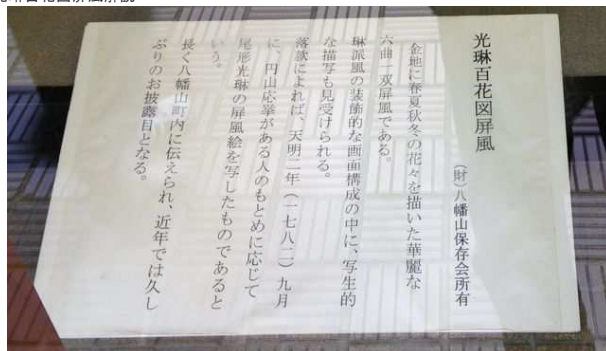 光琳百花図屏風
(財)八幡山保存会所有
金地に春夏秋冬の花々を描いた華麗な
六曲一双屏風である。
琳派風の装飾的な画面構成の中に、写生的
な描写も見受けられる。
落款によれば、天明二年(一七八二)九月
に、円山応挙がある人のもとめに応じて
尾形光琳の屏風絵を写したものであると
いう。
長く八幡山町内に伝えられ、近年では久し
ぶりのお披露目となる。